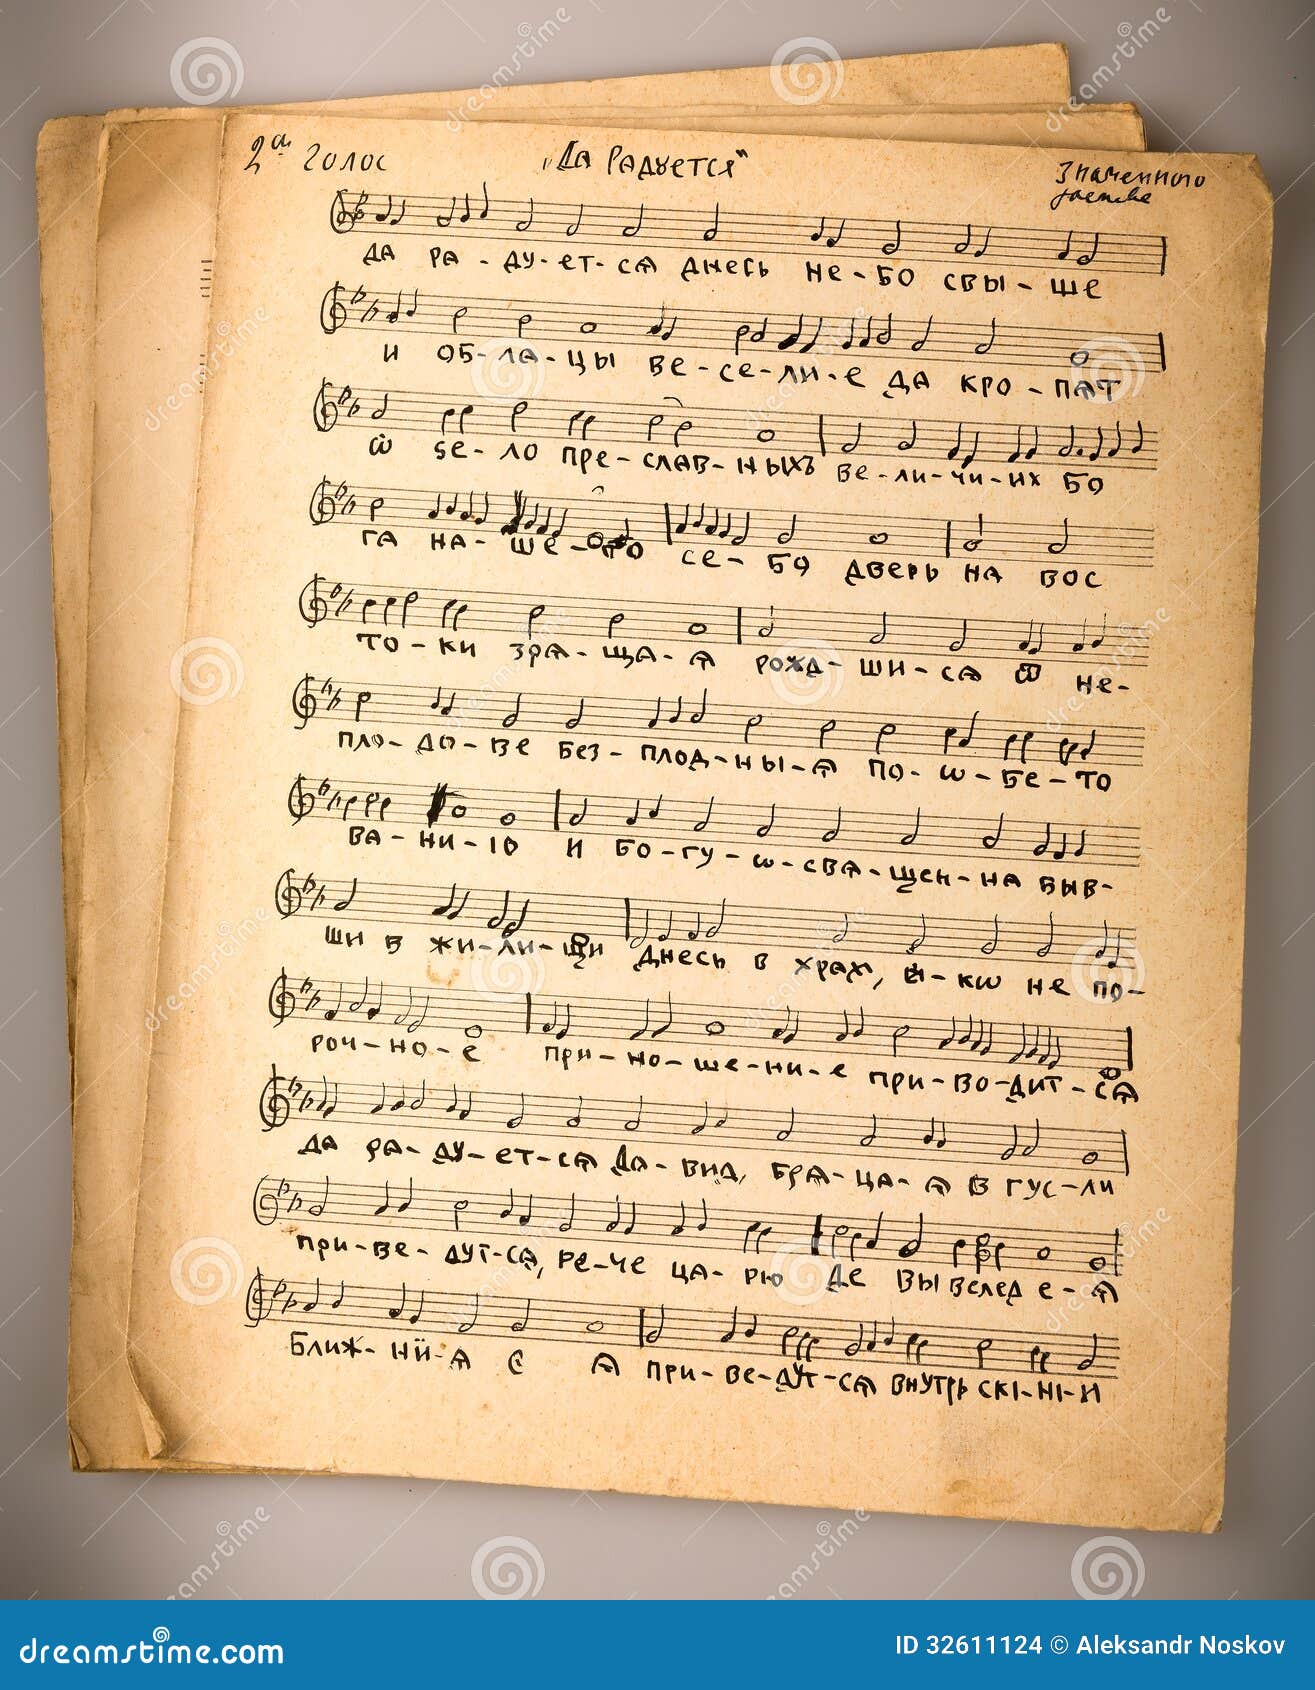 2а голос „Да Радуется" Знаменного
ДА РА - ДУ - ЕТ - СѦ ДНЕСЬ НЕ - БО СВЫ - ШЕ
И ОБ - ЛА - ЦЫ ВЕ - СЕ - ЛИ - Е ДА КРО - ПѦТ
Ѡ ЅЕ - ЛО ПРЕ - СЛАВ - НЫХЪ ВЕ - ЛИ - ЧИ - ИХ БО
ГА НА - ШЕ - ГО СЕ - БО ДВЕРЬ НА ВОС
ТО - КИ ЗРѦ - ЩА - Ѧ РОЖД - ШИ - СѦ Ѿ НЕ -
ПЛО - ДО - ВЕ БЕЗ - ПЛОД - НЫ - Ѧ ПО - Ѡ - БЕ - ТО
ВА - НИ - Ю И БО - ГУ - Ѡ - СВѦ - ЩЕН - НА БЫВ -
ШИ В ЖИ - ЛИ - ЩИ ДНЕСЬ В ХРАМ, Ѧ - КѠ НЕ ПО -
РОЧ - НО - Е ПРИ - НО - ШЕ - НИ - Е ПРИ - ВО - ДИТ - СѦ
ДА РА - ДУ - ЕТ - СѦ ДА - ВИД, БРѦ - ЦА - Ѧ В ГУС - ЛИ
ПРИ - ВЕ - ДУТ - СѦ, РЕ - ЧЕ ЦА - РЮ ДЕ ВЫ ВСЛЕД Е - Ѧ
БЛИЖ - НИ - Ѧ Е Ѧ ПРИ - ВЕ - ДУТ - СѦ ВНУТРЬ СКІ - НІ - И
dreamstime
dreamstime.com ID 32611124 © Aleksandr Noskov